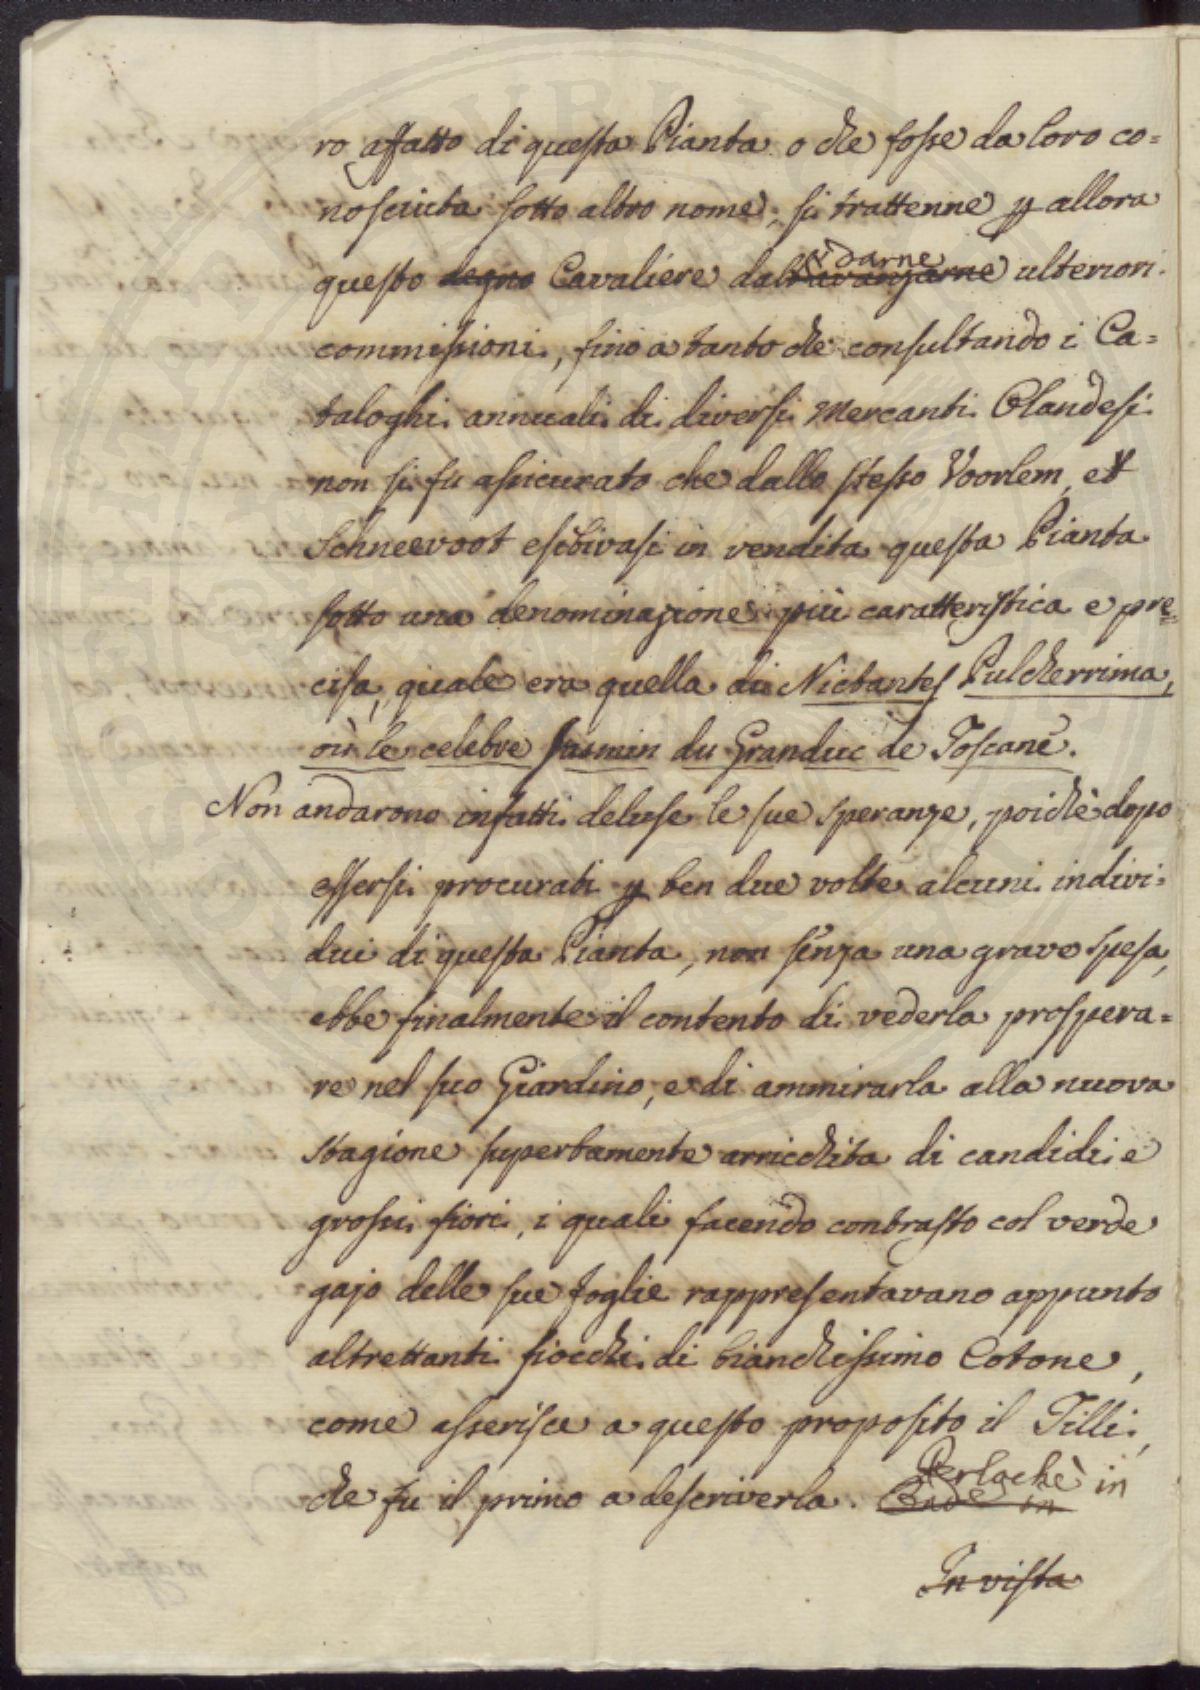 ro affatto di questa Pianta o che fosse da loro co=
nosciuta sotto altro nome, si trattenne p allora
questo degno Cavaliere dall'avanzarne darne ulteriori
commissioni, fino a tanto che consultando i Ca=
taloghi annuali di diversi Mercanti Olandesi
non si fu assicurato che dallo stesso Voorlem, et
Schneevoot esibivasi in vendita questa Pianta
sotto una denominazione più caratteristica e pre=
cisa, quale era quella di Nictantes Pulcherrima,
où le celebre Jasmin du Granduc de Toscane.
Non andarono infatti deluse le sue speranze, poichè dopo
essersi procurati p ben due volte alcuni indivi=
dui di questa Pianta, non senza una grave spesa,
ebbe finalmente il contento di vederla prospera=
re nel suo Giardino, e di ammirarla alla nuova
stagione superbamente arricchita di candidi e
grossi fiori, i quali facendo contrasto col verde
gajo delle sue foglie rappresentavano appunto
altrettanti fiocchi di bianchissimo Cotone,
come asserisce a questo proposito il Tilli,
che fu il primo a descriverla. Onde in Perlochè in
In vista